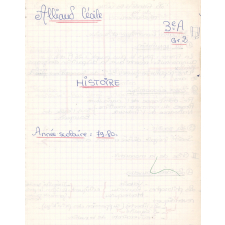 Alliaud Cécile
3e A
Gr 2
HISTOIRE
Année scolaire : 79-80.